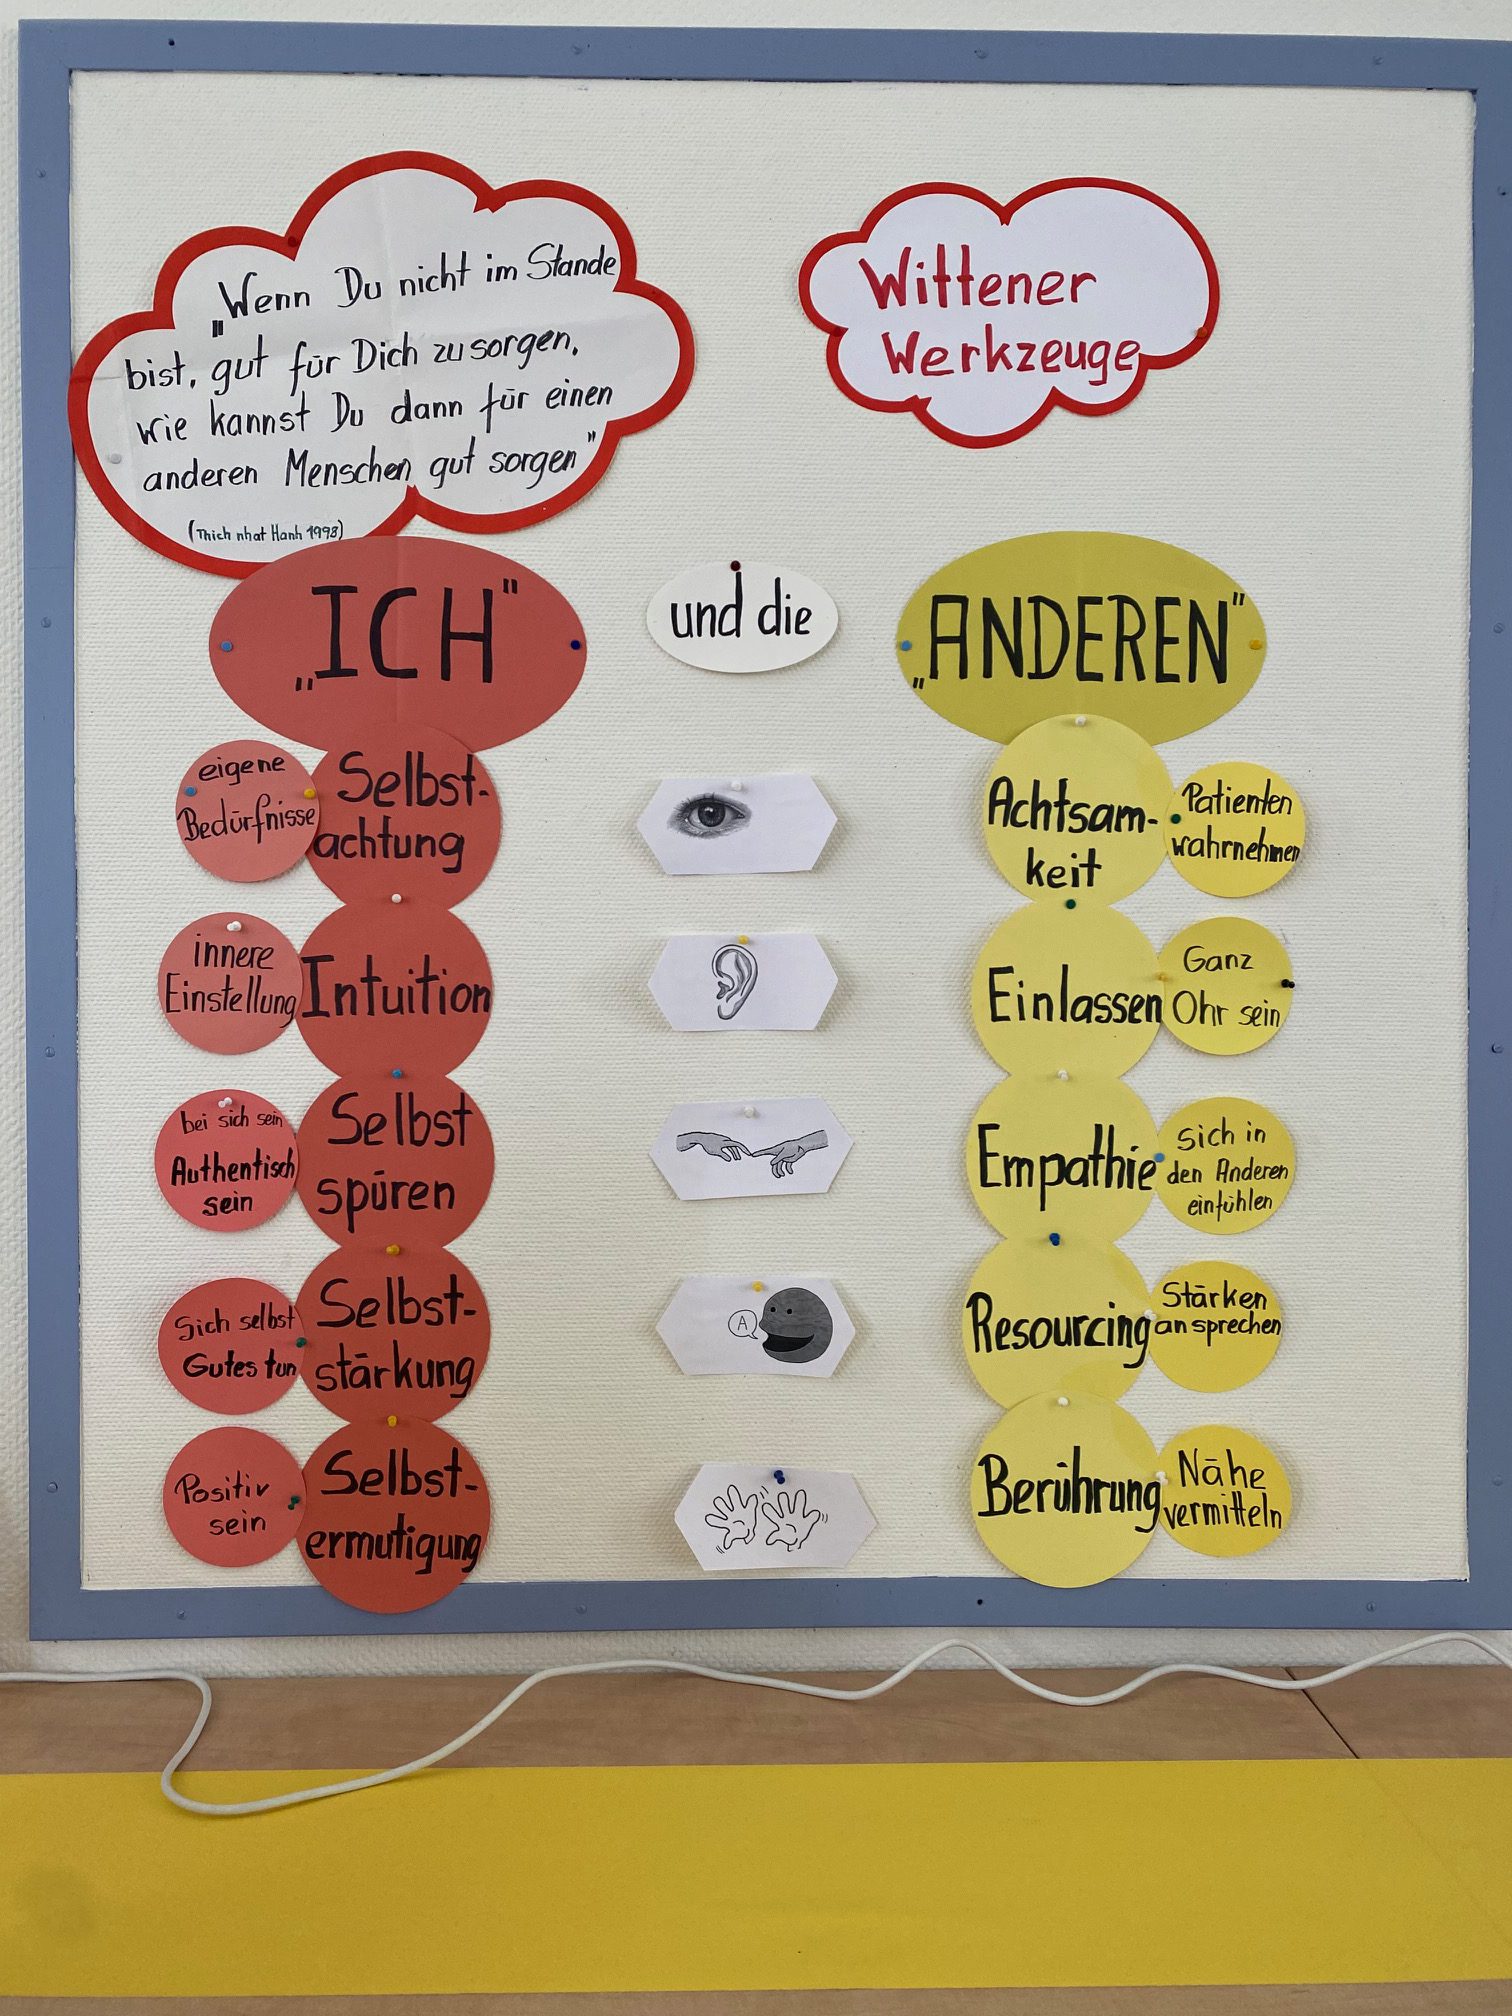 „Wenn Du nicht im Stande
bist, gut für Dich zu sorgen,
wie kannst Du dann für einen
anderen Menschen gut sorgen"
(Thich nhat Hanh 1998)
Wittener
Werkzeuge
„ICH"
und die
„ANDEREN"
eigene
Bedürfnisse
Selbst-
achtung
Achtsam-
keit
Patienten
wahrnehmen
innere
Einstellung
Intuition
Einlassen
Ganz
Ohr sein
bei sich sein
Authentisch
sein
Selbst
spüren
Empathie
sich in
den Anderen
einfühlen
Sich selbst
Gutes tun
Selbst-
stärkung
A
Resourcing
Stärken
ansprechen
Positiv
sein
Selbst-
ermutigung
Berührung
Nähe
vermitteln